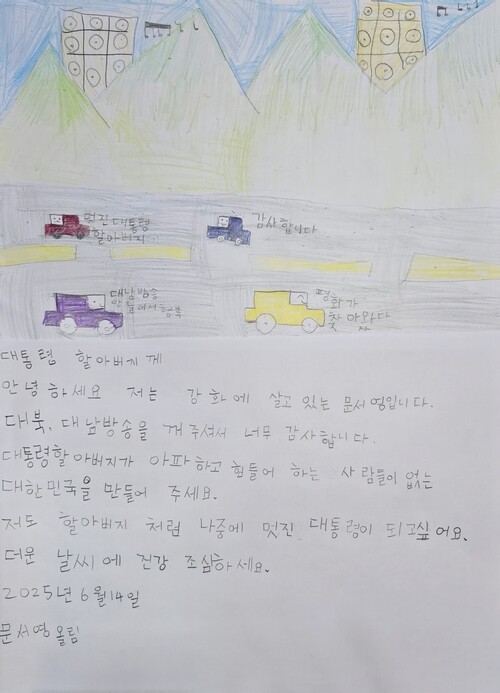 멋진대통령
할아버지
감사합니다
대남방송
안들어서행복
평
화가
찾아와다
대통령 할아버지 께
안녕하세요 저는 강화에 살고 있는 문서영입니다.
대북, 대남방송을 꺼주셔서 너무 감사합니다.
대통령할아버지가 아파하고 힘들어 하는 사람들이 없는
대한민국을 만들어 주세요.
저도 할아버지 처럼 나중에 멋진 대통령이 되고싶어요.
더운 날씨에 건강 조심하세요.
2025년 6월 14일
문서영 올림